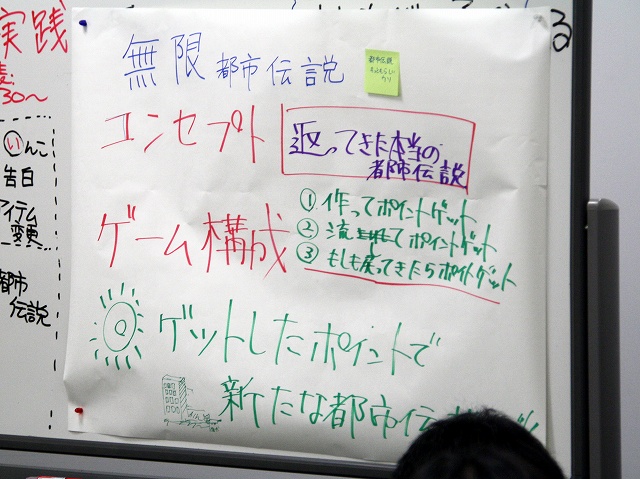 無限都市伝説
都市伝説
コンセプト
返ってきた本当の
都市伝説
ゲーム構成
① 作ってポイントゲット
② 流してポイントゲット
③ もしも戻ってきたらポイントゲット
ゲットしたポイントで
新たな都市伝
実践
30〜
いんこ
告白
アイテム
変更
都市
伝説
る